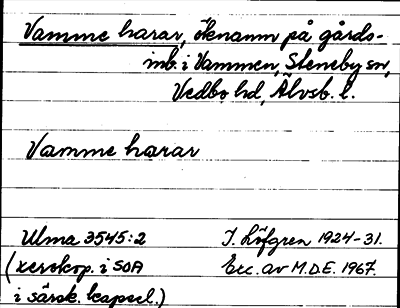 Vamme harar, öknamn på gårds-
inb. i Vammen, Steneby sn,
Vedbo hd, Älvsb. l.
Vamme harar
Ulma 3545:2
(xerokop. i SOA
i särsk. kapsel.)
J. Löfgren 1924-31.
Exc. av M.D.E. 1967.